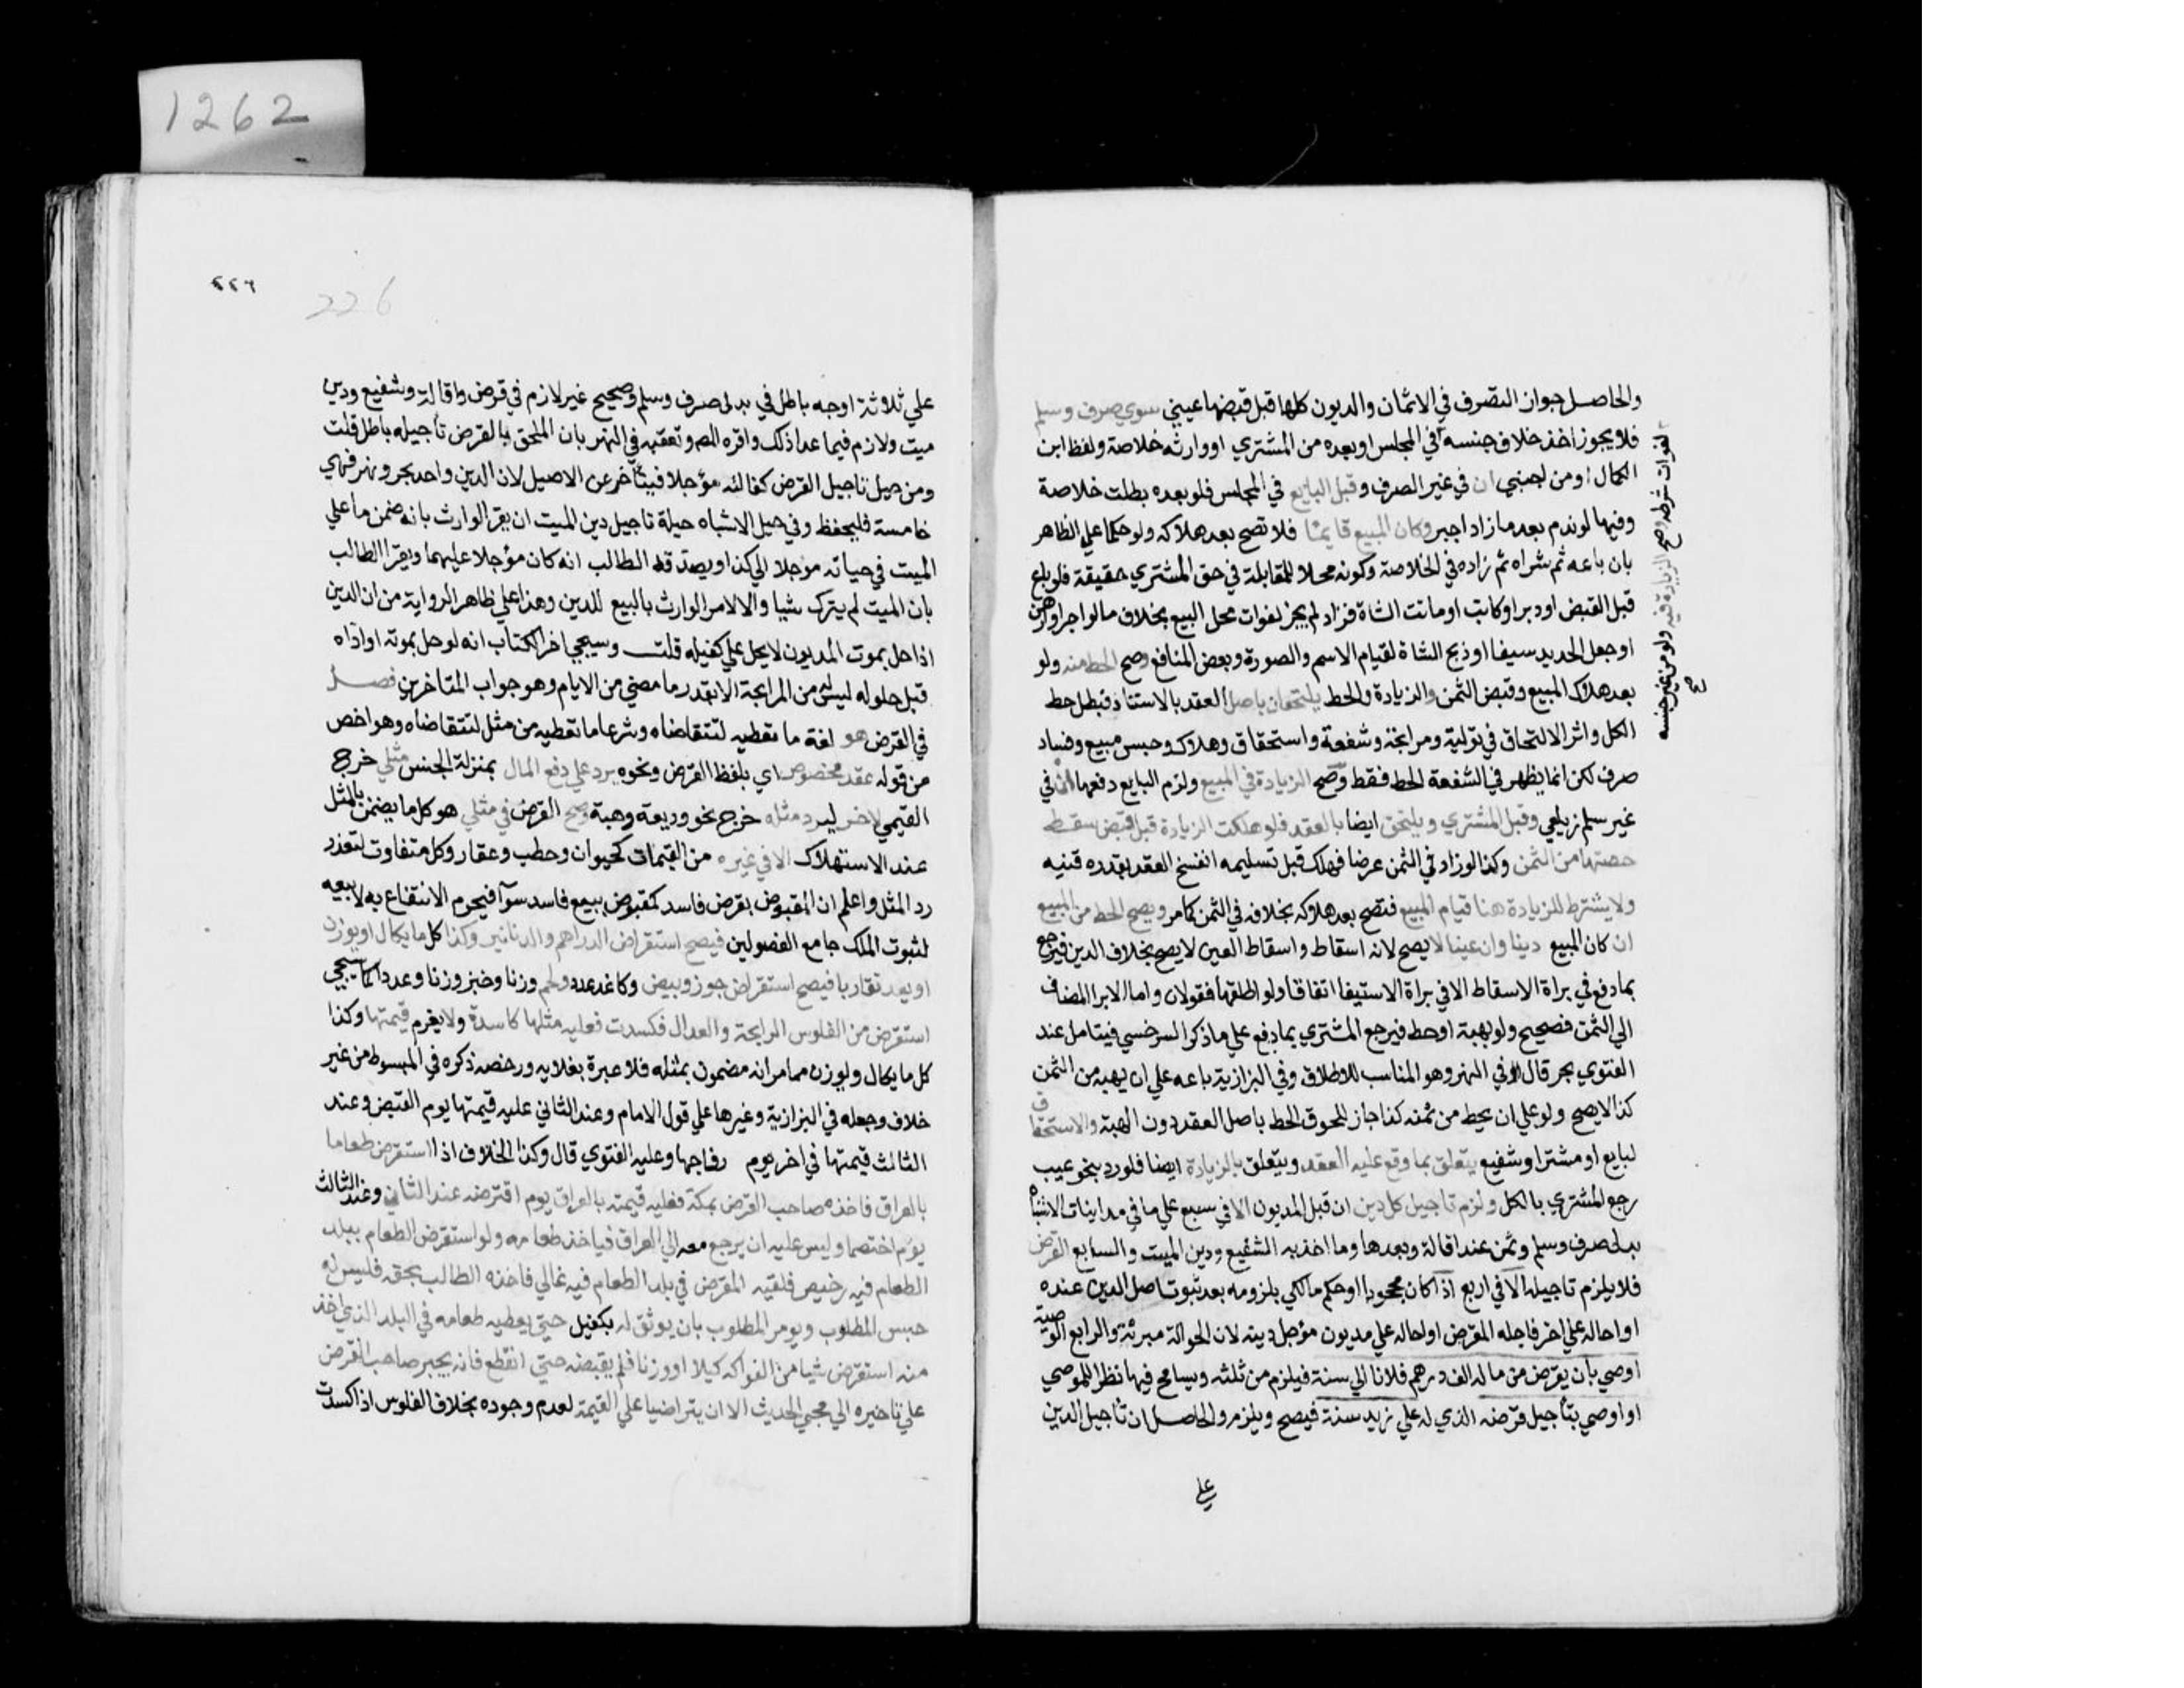 والحاصل جواز التصرف في الاثمان والديون كلها قبل قبضها عيني سوي صرف وسلم
فلا يجوز اخذ خلاف جنسه في المجلس او بعده من المشتري او وارثه خلاصة ولفظ ابن
الكمال او من اجنبي ان في غير الصرف وقبل البايع في المجلس فلو بعده بطلت خلاصة
وفيها لو ندم بعد ما زاد اجبر وكان المبيع قايما فلا تصح بعد هلاكه ولو حكما علي الظاهر
بان باعه ثم شراه ثم زاده في الخلاصة وكونه محلا للمقابلة في حق المشتري حقيقة فلو باع
قبل القبض او دبر او كاتب او ماتت الشاة فزاد لم يجز لفوات محل البيع بخلاف ما لو اجر او رهن
او جعل الحديد سيفا او ذبح الشاة لقيام الاسم والصورة وبعض المنافع وصح الحط منه ولو
بعد هلاك المبيع وقبض الثمن والزيادة والحط يلتحقان باصل العقد بالاستناد فبطل حط
الكل واثر الالتحاق في تولية ومرابحة وشفعة واستحقاق وهلاك وحبس مبيع وفساد
صرف لكن انما يظهر في الشفعة الحط فقط وصح الزيادة في المبيع ولزم البايع دفعها ان في
غير سلم زيلعي وقبل المشتري ويلتحق ايضا بالعقد فلو هلكت الزيادة قبل قبض سقط
حصتها من الثمن وكذا لو زاد في الثمن عرضا فهلك قبل تسليمه انفسخ العقد بقدره قنيه
ولا يشترط للزيادة هنا قيام المبيع فتصح بعد هلاكه بخلافه في الثمن كما مر ويصح الحط من المبيع
ان كان المبيع دينا وان عينا لا يصح لانه اسقاط واسقاط العين لا يصح بخلاف الدين فيرجع
بما دفع في براة الاسقاط الا في براة الاستيفا اتفاقا ولو اطلقها فقولان واما الابرا المضاف
الي الثمن فصحيح ولو بهبة او حط فيرجع المشتري بما دفع علي ما ذكر السرخسي فيتامل عند
الفتوي بحر قال في النهر وهو المناسب للاطلاق وفي البزازية باعه علي ان يهبه من الثمن
كذا لا يصح ولو علي ان يحط من ثمنه كذا جاز للحوق الحط باصل العقد دون الهبة والاستحقاق
لبايع او مشتر او شفيع يتعلق بما وقع عليه العقد ويتعلق بالزيادة ايضا فلو رد بنحو عيب
رجع المشتري بالكل ولزم تاجيل كل دين ان قبل المديون الا في سبع علي ما في مداينات الاشباه
بدلي صرف وسلم وثمن عند اقالة وبعدها وما اخذ به الشفيع ودين الميت والسابع القرض
فلا يلزم تاجيله الا في اربع اذا كان مجحودا او حكم مالكي بلزومه بعد ثبوت اصل الدين عنده
او احاله علي اخر فاجله المقرض او احاله علي مديون مؤجل دينه لان الحوالة مبرئة والرابع الوصية
اوصي بان يقرض من ماله الف درهم فلانا الي سنة فيلزم من ثلثه ويسامح فيها نظرا للموصي
او اوصي بتأجيل قرضه الذي له علي زيد سنة فيصح ويلزم والحاصل ان تاجيل الدين
علي
لفوات شرطه وصح الزيادة فيه ولو من غير جنسه
صح
1262
٢٢٦
226
علي ثلاثة اوجه باطل في بدلي صرف وسلم وصحيح غير لازم في قرض واقالة وشفيع ودين
ميت ولازم فيما عدا ذلك واقره المص وتعقبه في النهر بان الملحق بالقرض تأجيله باطل قلت
ومن حيل تاجيل القرض كفالته مؤجلا فيتأخر عن الاصيل لان الدين واحد بحر ونهر فهي
خامسة فليحفظ وفي حيل الاشباه حيلة تاجيل دين الميت ان يقر الوارث بانه ضمن ما علي
الميت في حياته مؤجلا الي كذا ويصدقه الطالب انه كان مؤجلا عليهما ويقر الطالب
بان الميت لم يترك شيا والا لامر الوارث بالبيع للدين وهذا علي ظاهر الرواية من ان الدين
اذا حل بموت المديون لا يحل علي كفيله قلت وسيجي اخر الكتاب انه لو حل بموته او اداه
قبل حلوله ليس له من المرابحة الا بقدر ما مضي من الايام وهو جواب المتاخرين فصل
في القرض هو لغة ما تعطيه لتتقاضاه وشرعا ما تعطيه من مثل لتتقاضاه وهو اخص
من قوله عقد مخصوص اي بلفظ القرض ونحوه يرد علي دفع المال بمنزلة الجنس مثلي خرج
القيمي لاخر ليرد مثله خرج نحو وديعة وهبة وصح القرض في مثلي هو كل ما يضمن بالمثل
عند الاستهلاك لا في غيره من القيمات كحيوان وحطب وعقار وكل متفاوت لتعذر
رد المثل واعلم ان المقبوض بقرض فاسد كمقبوض ببيع فاسد سوآ فيحرم الانتفاع به لا بيعه
لثبوت الملك جامع الفصولين فيصح استقراض الدراهم والدنانير وكذا كل ما يكال او يوزن
او يعد تقاربا فيصح استقراض جوز وبيض وكاغد عدد ولحم وزنا وخبز وزنا وعددا كما سيجي
استقرض من الفلوس الرايجة والعدال فكسدت فعليه مثلها كاسدة ولا يغرم قيمتها وكذا
كل ما يكال ويوزن مما مر انه مضمون بمثله فلا عبرة بغلايه ورخصه ذكره في المبسوط من غير
خلاف وجعله في البزازية وغيرها علي قول الامام وعند الثاني عليه قيمتها يوم القبض وعند
الثالث قيمتها في اخر يوم رواجها وعليه الفتوي قال وكذا الخلاف اذا استقرض طعاما
بالعراق فاخذه صاحب القرض بمكة فعليه قيمته بالعراق يوم اقترضه عند الثاني وعند الثالث
يوم اختصما وليس عليه ان يرجع معه الي العراق فياخذ طعامه ولو استقرض الطعام ببلد
الطعام فيه رخيص فلقيه المقرض في بلد الطعام فيه غالي فاخذه الطالب بحقه فليس له
حبس المطلوب ويومر المطلوب بان يوثق له بكفيل حتي يعطيه طعامه في البلد الذي اخذ
منه استقرض شيا من الفواكه كيلا او وزنا فلم يقبضه حتي انقطع فانه يجبر صاحب القرض
علي تاخيره الي مجي الحديث الا ان يتراضيا علي القيمة لعدم وجوده بخلاف الفلوس اذا كسدت